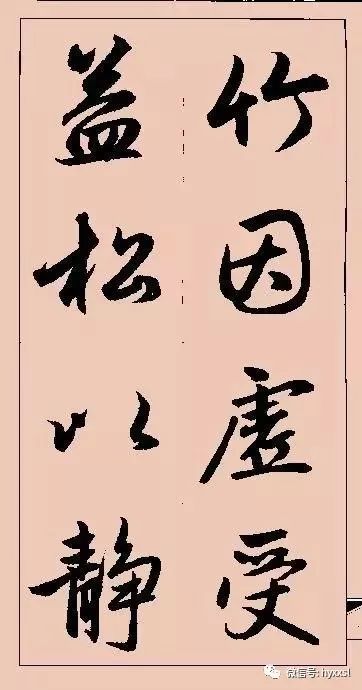 竹因虛受
益松以静
微信号: hyxxsl